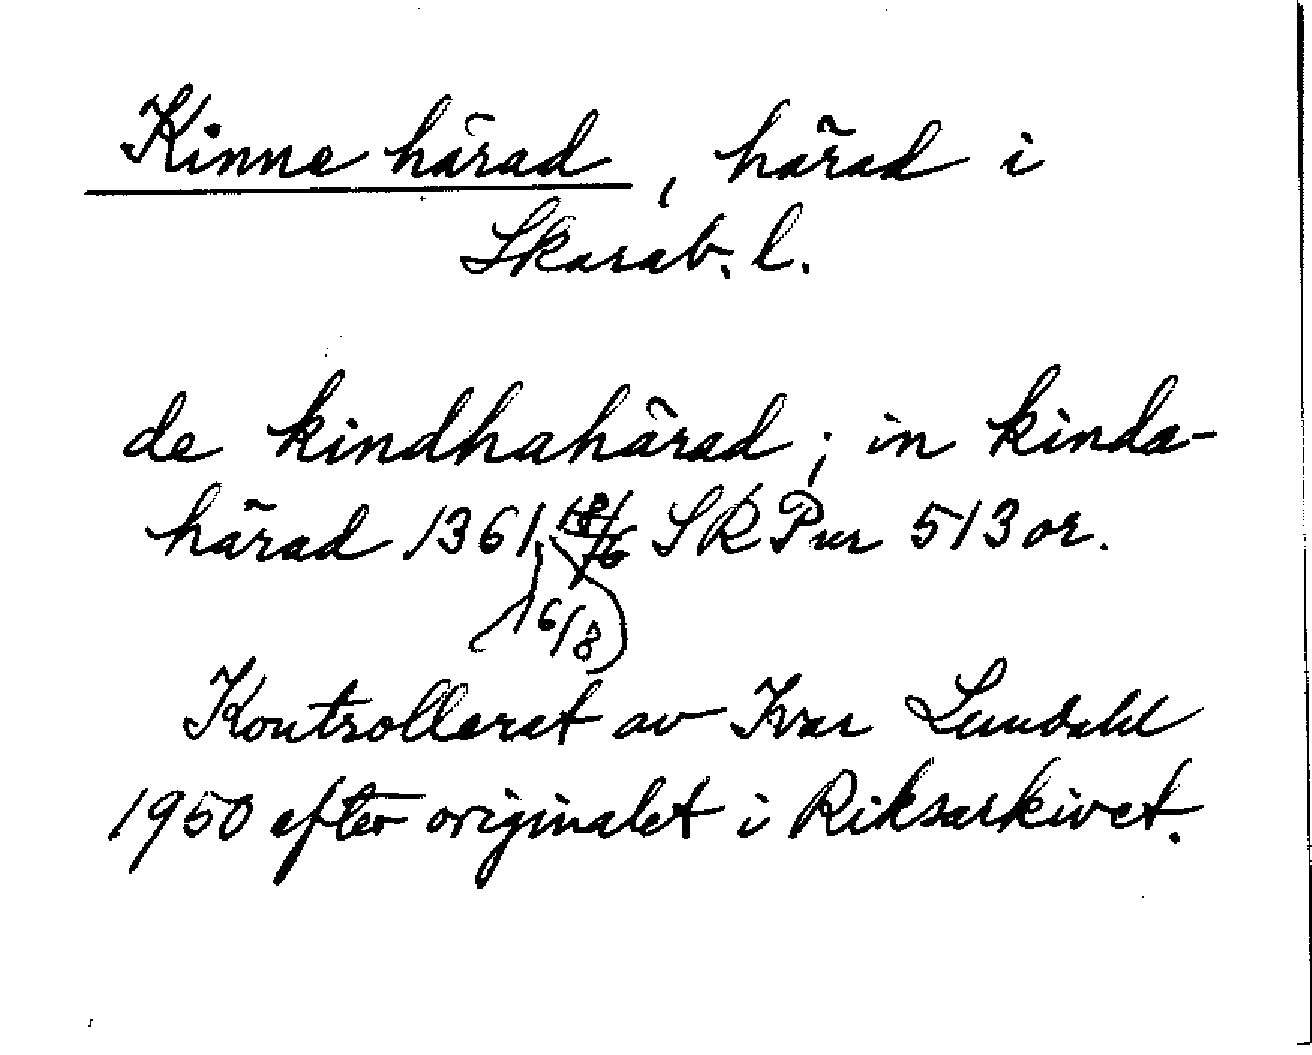 Kinne härad, härad i
Skarab. l.
de kindhahärad; in kinda-
härad 1361 18/6 SRPur 513 or.
16/8
Kontrollerat av Ivar Lundahl
1950 efter originalet i Riksarkivet.